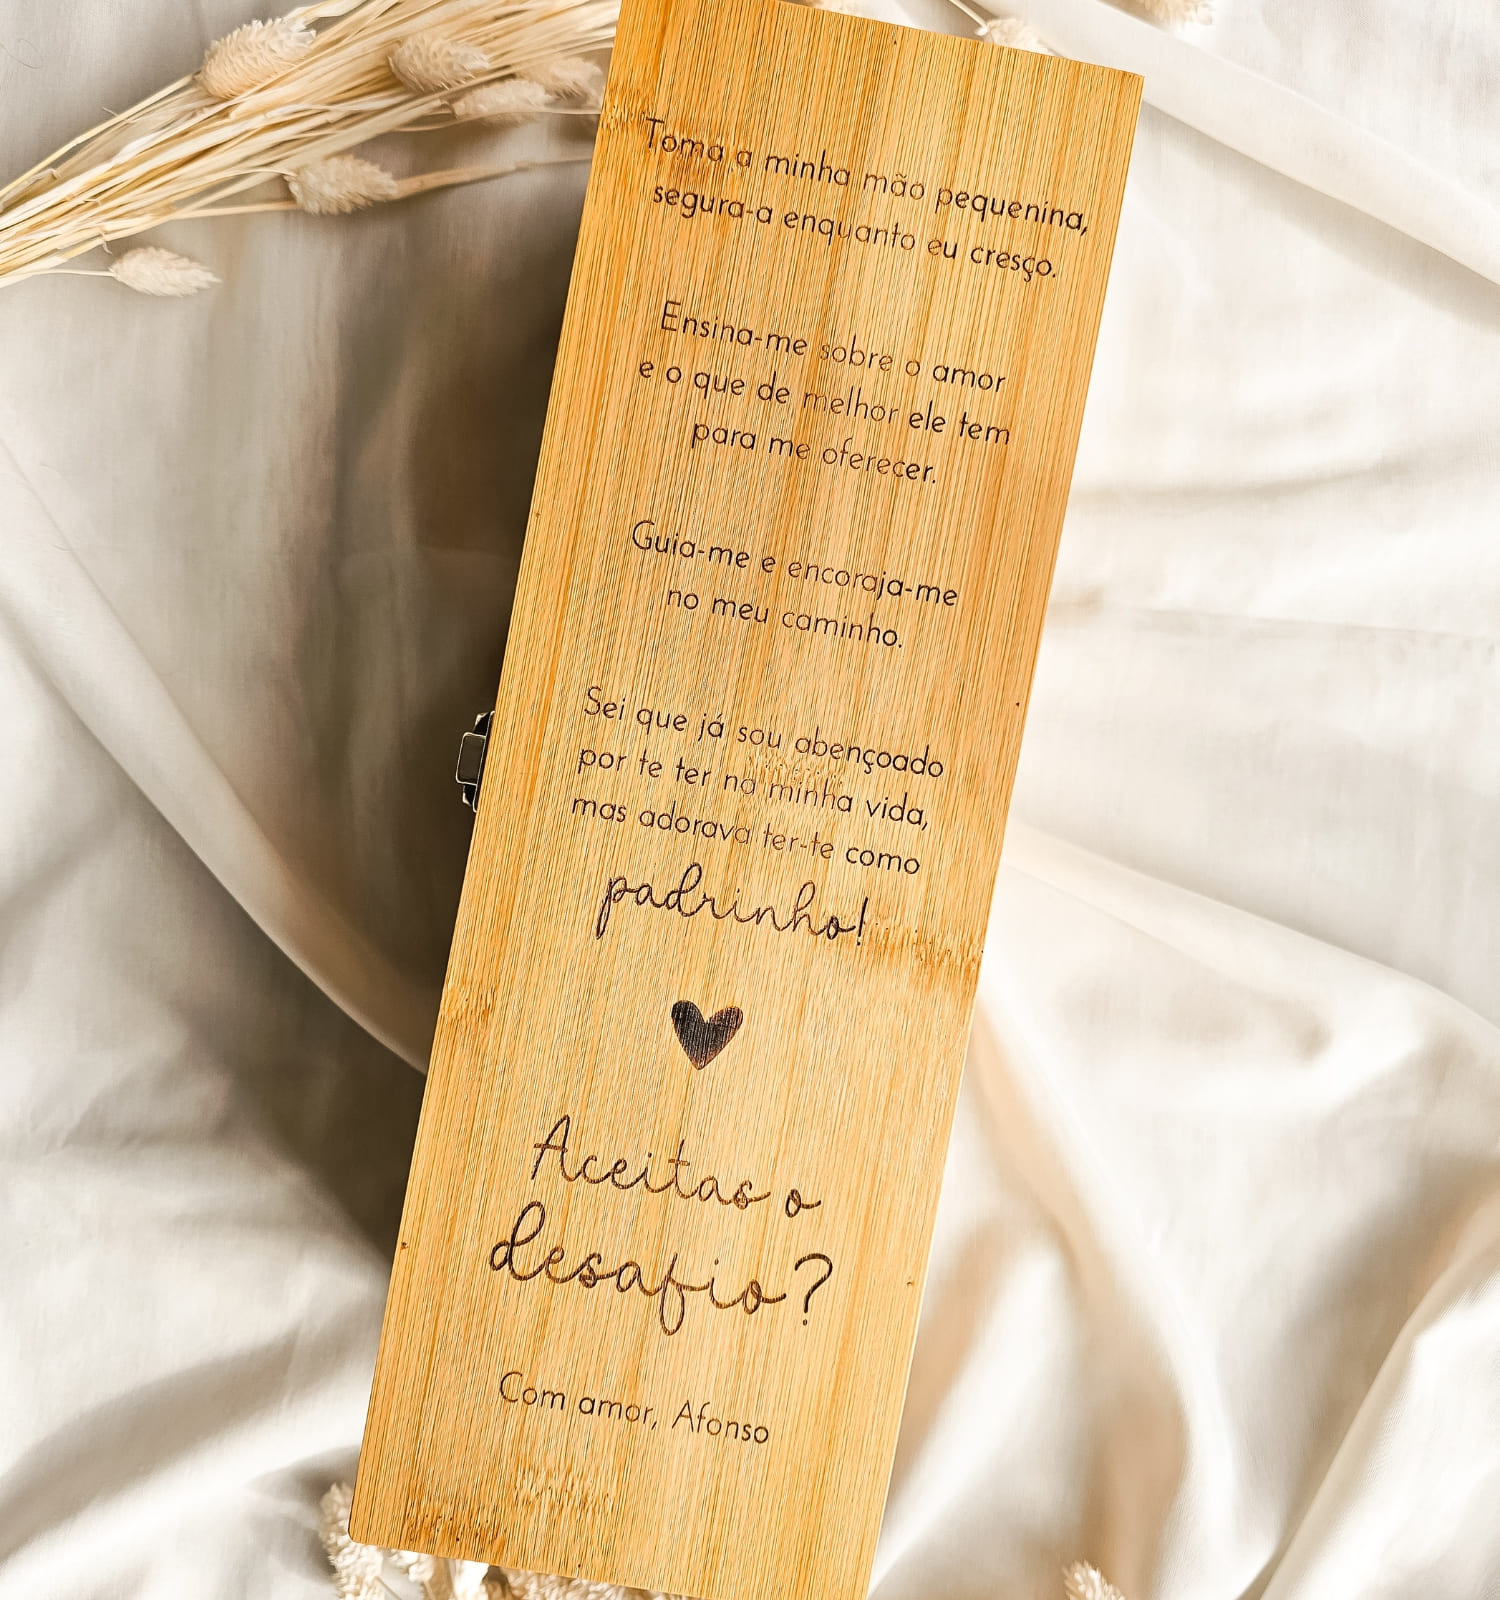 Toma a minha mão pequenina,
segura-a enquanto eu cresço.
Ensina-me sobre o amor
e o que de melhor ele tem
para me oferecer.
Guia-me e encoraja-me
no meu caminho.
Sei que já sou abençoado
por te ter na minha vida,
mas adorava ter-te como
padrinho!
Aceitas o
desafio?
Com amor, Afonso